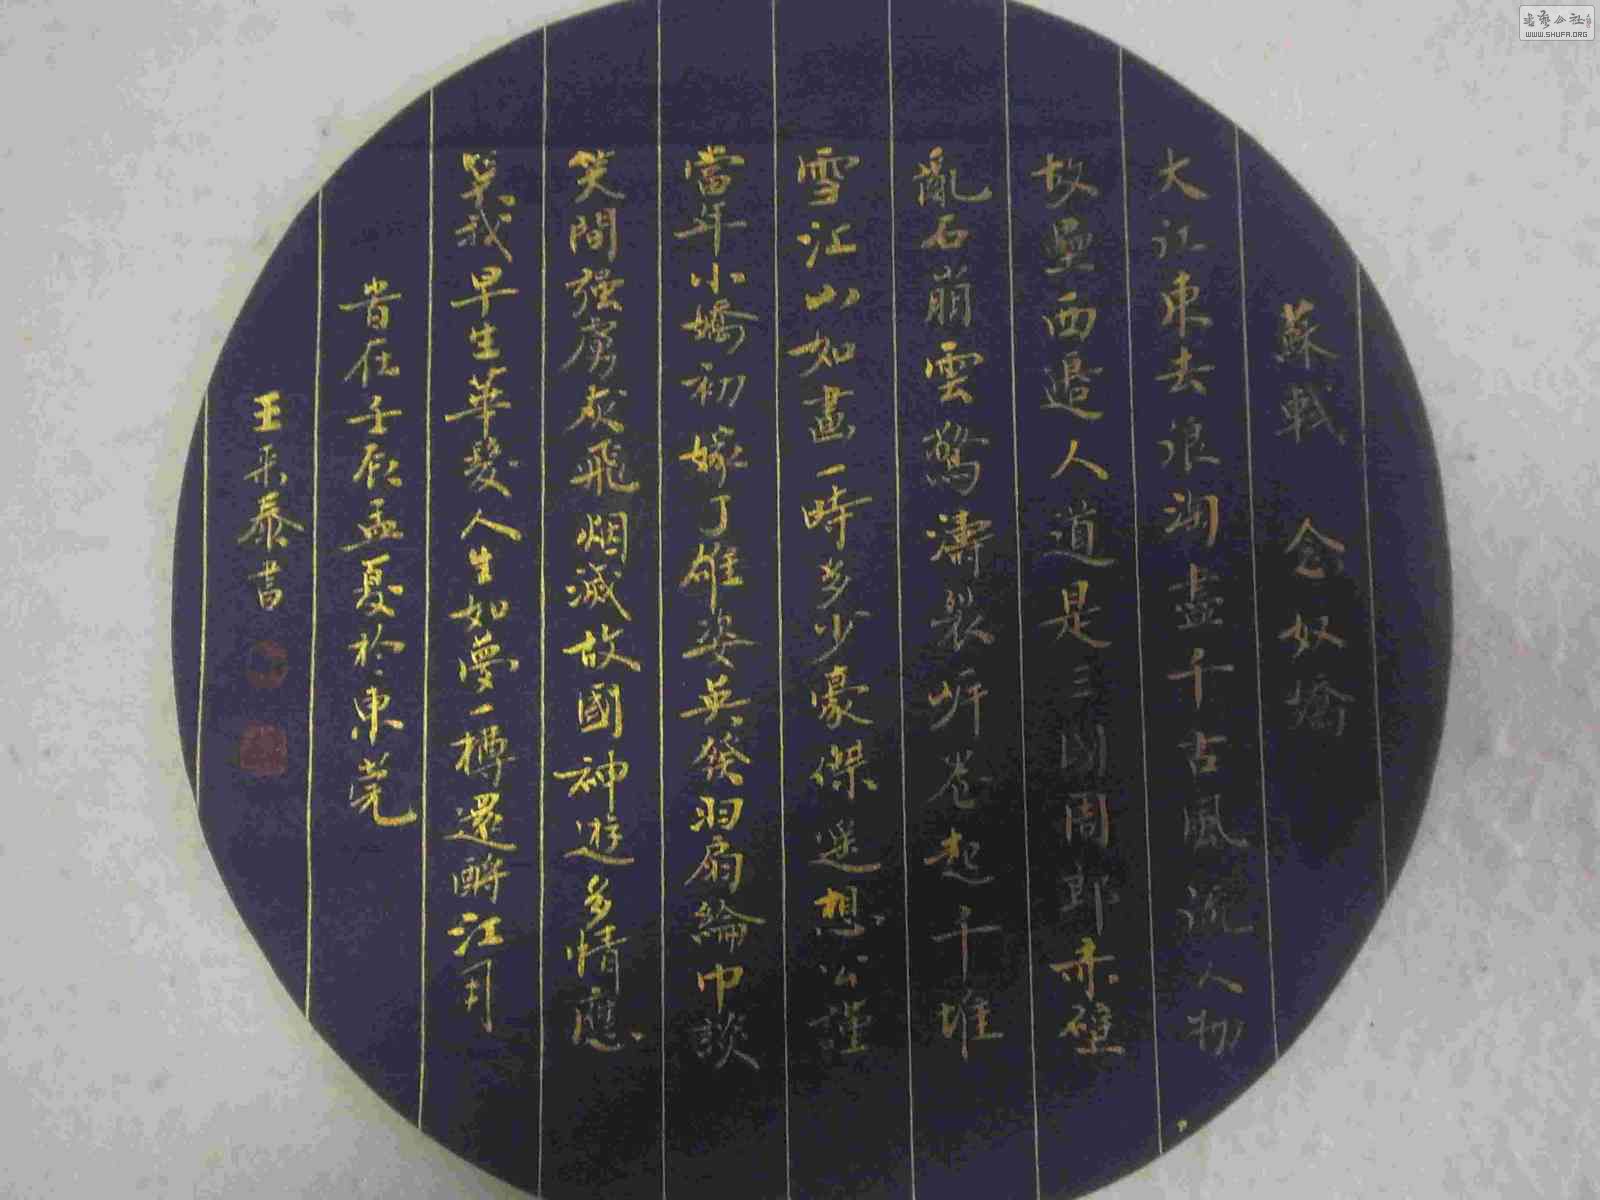 蘇軾 念奴嬌
大江東去浪淘盡千古風流人物
故壘西邊人道是三國周郎赤壁
亂石崩雲驚濤裂岸卷起千堆
雪江山如畫一時多少豪傑遥想公謹
當年小嬌初嫁了雄姿英發羽扇綸巾談
笑間强虜灰飛烟滅故國神遊多情應
笑我早生華髮人生如夢一樽還酹江月
時在壬辰孟夏於東莞
王來泰書
書藝公社
WWW.SHUFA.ORG